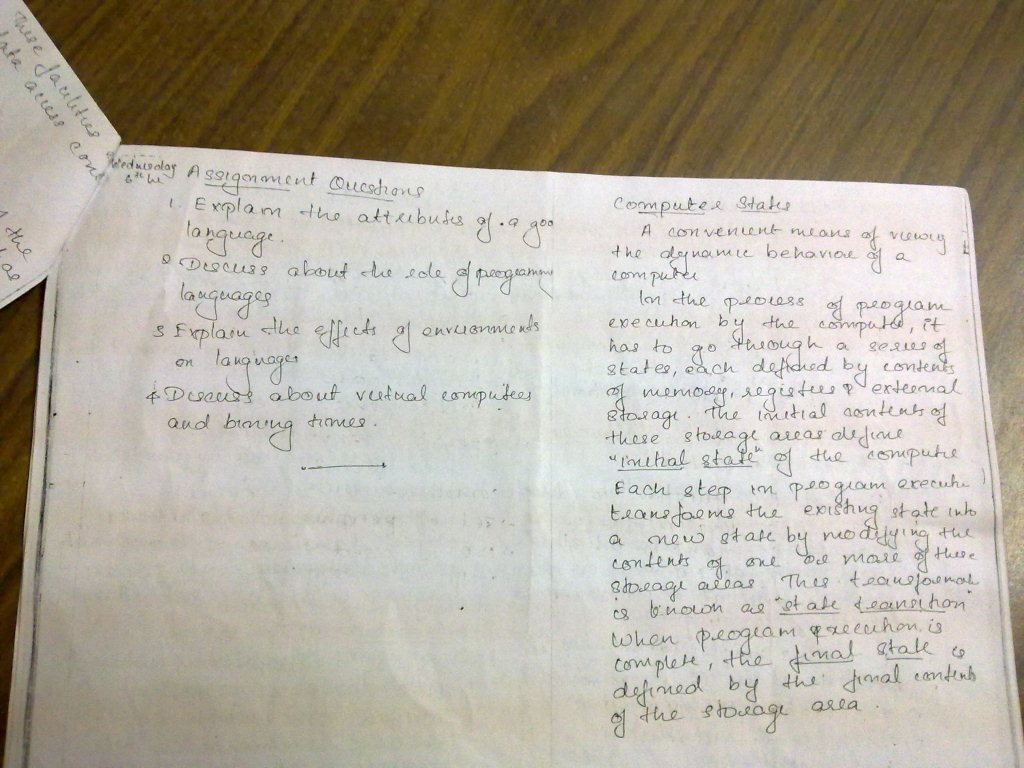 These facilities
data access con
the
Wednesday
6th hr
Assignment Questions
1. Explain the attributes of a goo
language.
2 Discuss about the role of programmy
languages
3 Explain the effects of environments
on languages
4 Discuss about virtual computers
and bining times.
Computer State
A convenient means of viewing
the dynamic behavior of a
computer
In the process of program
execution by the computer, it
has to go through a series of
states, each defined by contents
of memory, registers & external
storage. The initial contents of
these storage areas define
"initial state" of the compute
Each step in program executi
transforms the existing state into
a new state by modifying the
contents of one or more of these
storage areas This transformat
is known as "state transition"
When program execution is
complete, the final state is
defined by the final contents
of the storage area.